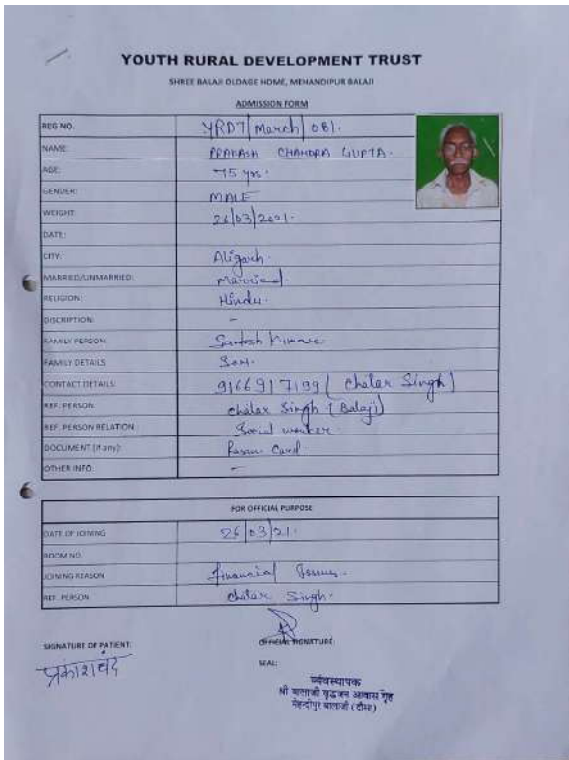 YOUTH RURAL DEVELOPMENT TRUST
SHREE BALAJI OLDAGE HOME, MEHANDIPUR BALAJI
ADMISSION FORM
REG NO. YRDT/March/081.
NAME: PRAKASH CHANDRA GUPTA.
AGE: 75 yrs.
GENDER: MALE
WEIGHT: 26/03/2001.
DATE:
CITY: Aligarh.
MARRIED/UNMARRIED: Married.
RELIGION: Hindu.
DISCRIPTION: -
FAMILY PERSON: Santosh Kumar
FAMILY DETAILS Son.
CONTACT DETAILS: 9166917199 (Chatar Singh)
REF. PERSON: Chatar Singh (Balaji)
REF. PERSON RELATION: Social worker.
DOCUMENT (if any): Card
OTHER INFO: -
FOR OFFICIAL PURPOSE
DATE OF JOINING 26/03/21.
ROOM NO.
JOINING REASON Financial Issues.
REF. PERSON Chatar Singh.
SIGNATURE OF PATIENT: OFFICIAL SIGNATURE:
प्रकाशचंद SEAL:
व्यवस्थापक
श्री बालाजी वृद्धजन आवास गृह
मेहन्दीपुर बालाजी (दौसा)